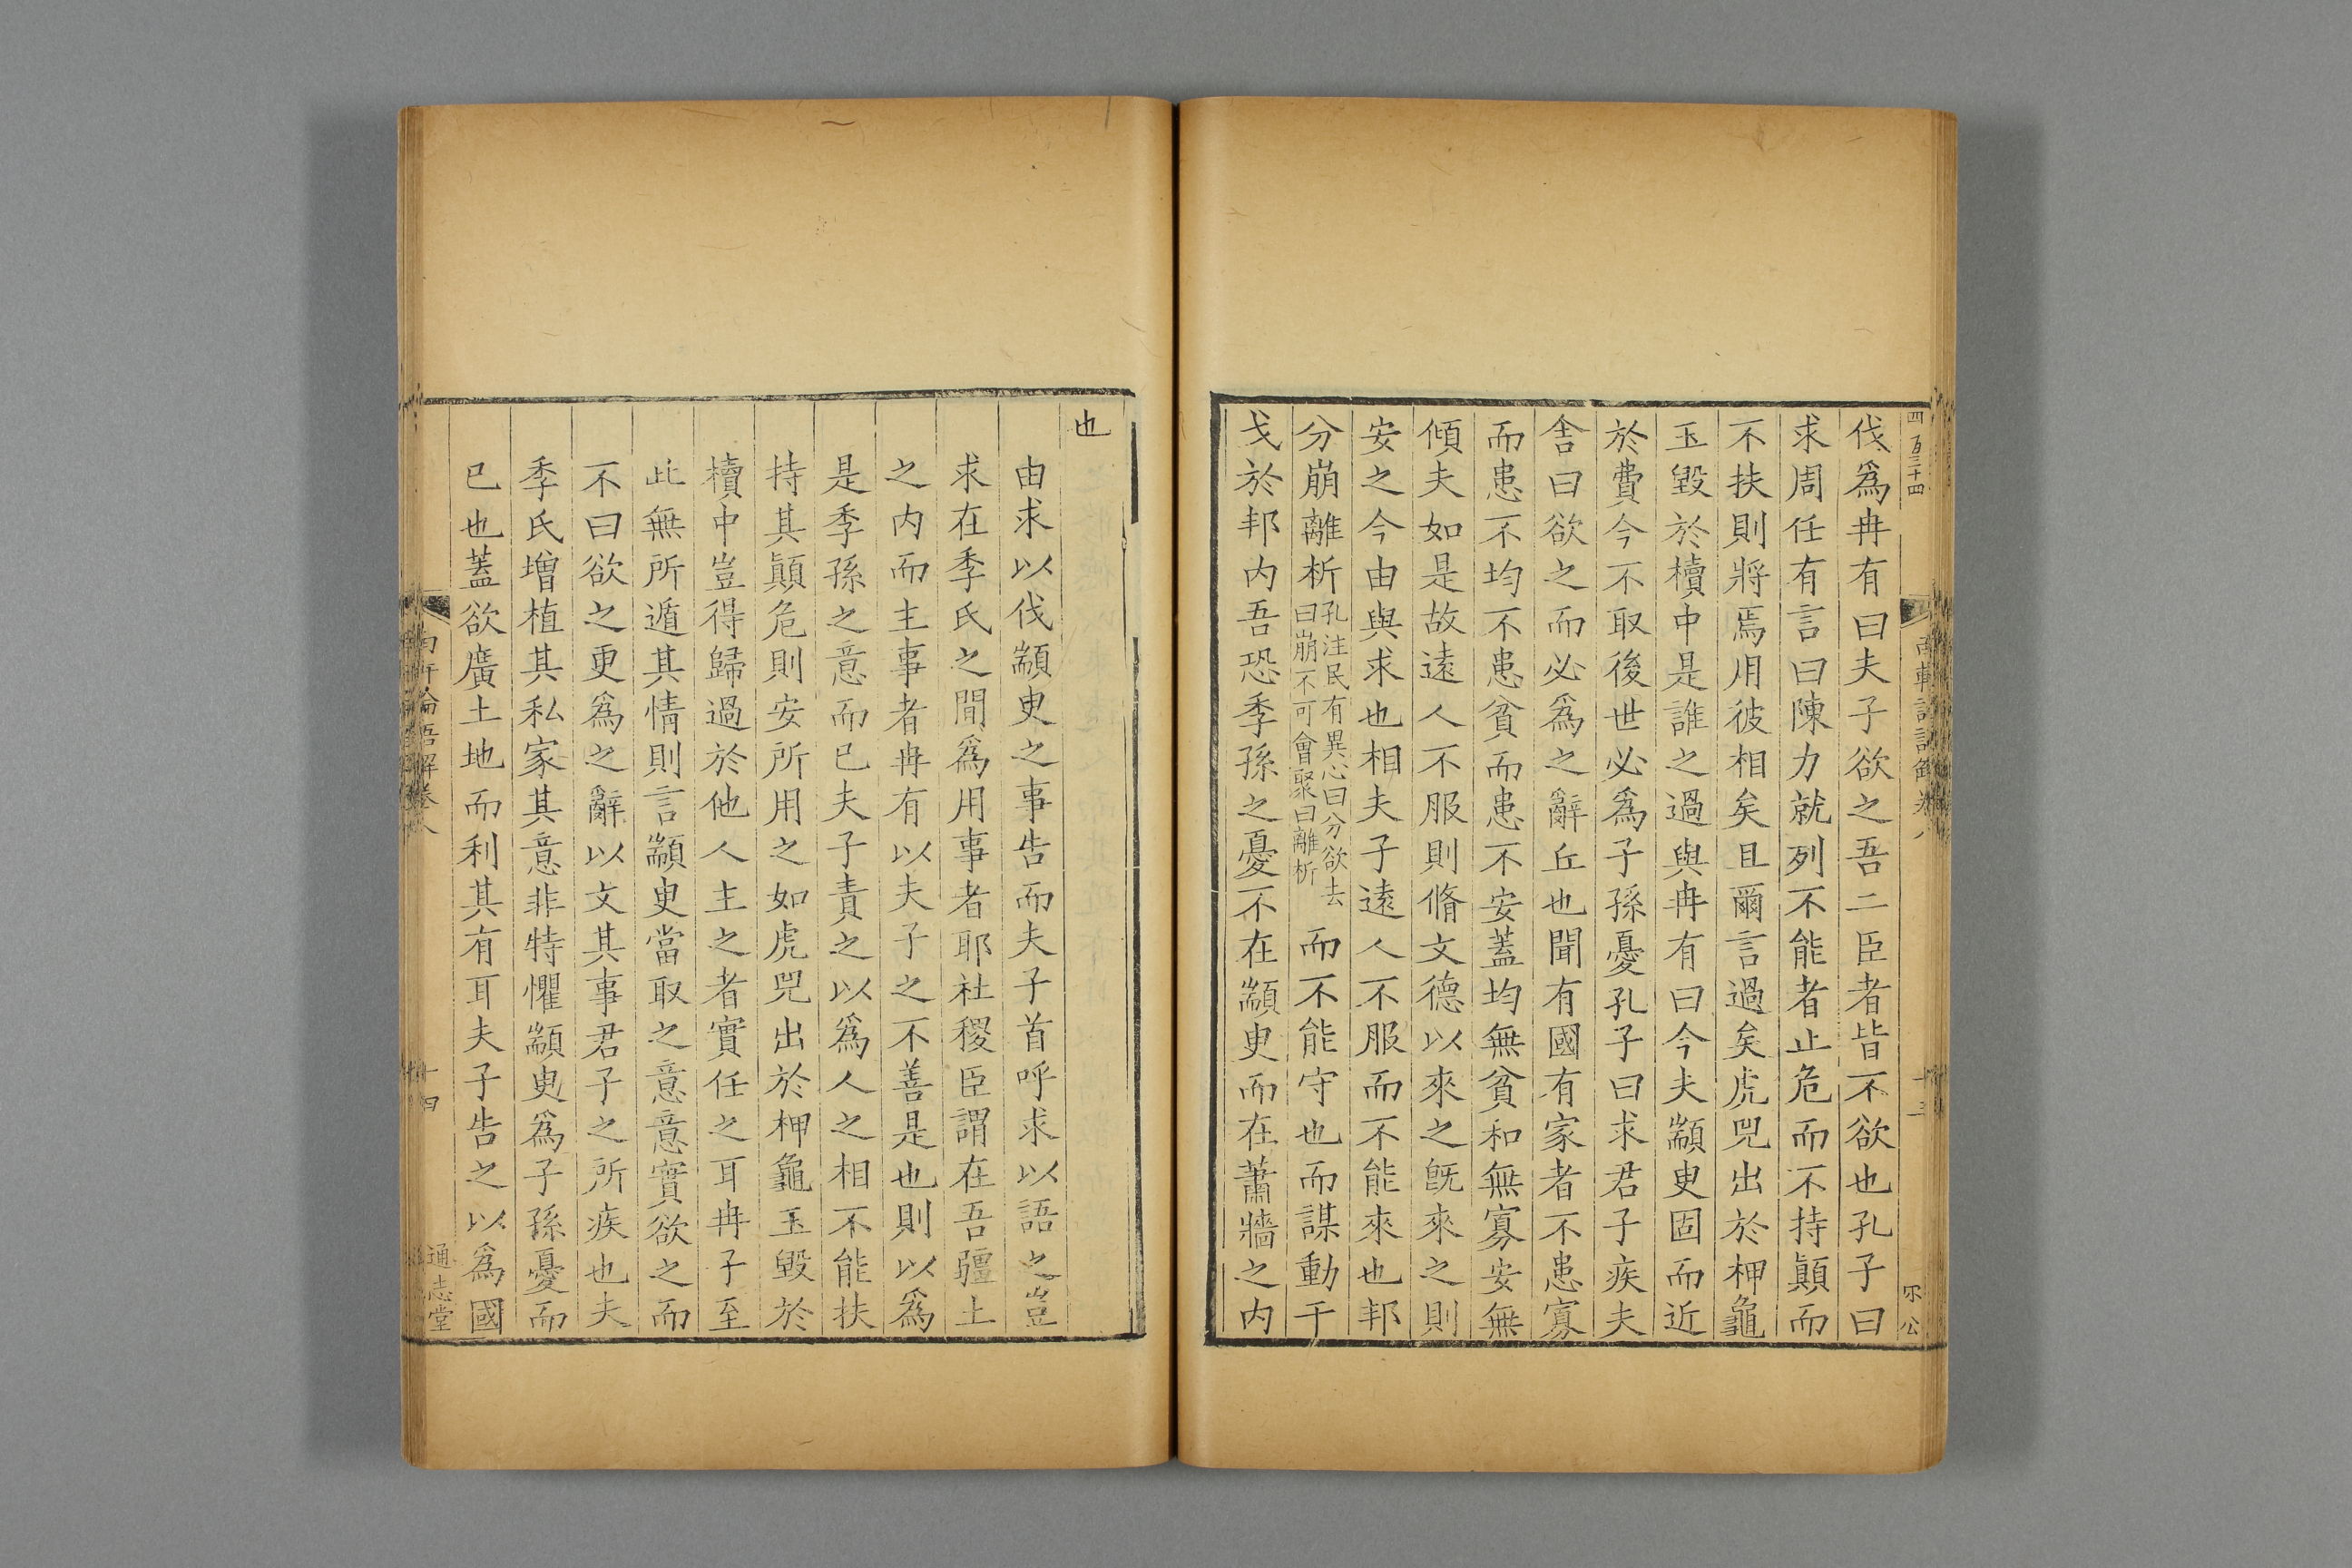 四百三十四
伐爲冉有曰夫子欲之吾二臣者皆不欲也孔子曰
求周任有言曰陳力就列不能者止危而不持顚而
不扶則將焉用彼相矣且爾言過矣虎兕出於柙龜
玉毀於櫝中是誰之過與冉有曰今夫顓臾固而近
於費今不取後世必爲子孫憂孔子曰求君子疾夫
舍曰欲之而必爲之辭丘也聞有國有家者不患寡
而患不均不患貧而患不安蓋均無貧和無寡安無
傾夫如是故遠人不服則脩文德以來之旣來之則
安之今由與求也相夫子遠人不服而不能來也邦
分崩離析孔注民有異心曰分欲去曰崩不可會聚曰離析而不能守也而謀動干
戈於邦內吾恐季孫之憂不在顓臾而在蕭牆之內
也
由求以伐顓臾之事告而夫子首呼求以語之豈
求在季氏之間爲用事者耶社稷臣謂在吾疆土
之內而主事者冉有以夫子之不善是也則以爲
是季孫之意而已夫子責之以爲人之相不能扶
持其顚危則安所用之如虎兕出於柙龜玉毀於
櫝中豈得歸過於他人主之者實任之耳冉子至
此無所遁其情則言顓臾當取之意意實欲之而
不曰欲之更爲之辭以文其事君子之所疾也夫
季氏增植其私家其意非特懼顓臾爲子孫憂而
已也蓋欲廣土地而利其有耳夫子告之以爲國
南軒論語解卷八
十四
通志堂